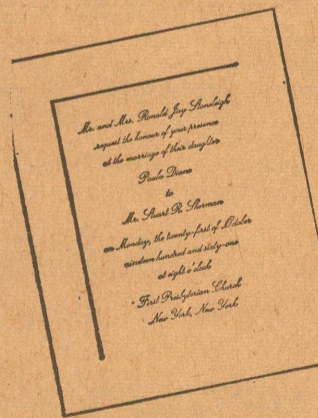 Mr. and Mrs. Ronald Jay Stoneleigh
request the honour of your presence
at the marriage of their daughter
Paula Diane
to
Mr. Stuart R. Sherman
on Monday, the twenty-first of October
nineteen hundred and sixty-one
at eight o'clock
First Presbyterian Church
New York, New York